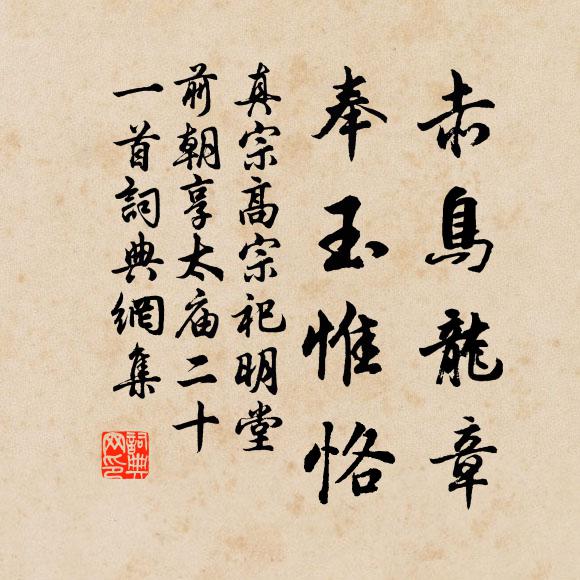 赤鳥龍章
奉玉惟恪
真宗高宗祀明堂
前朝享太庙二十
一首詞典網集
詞典
网印